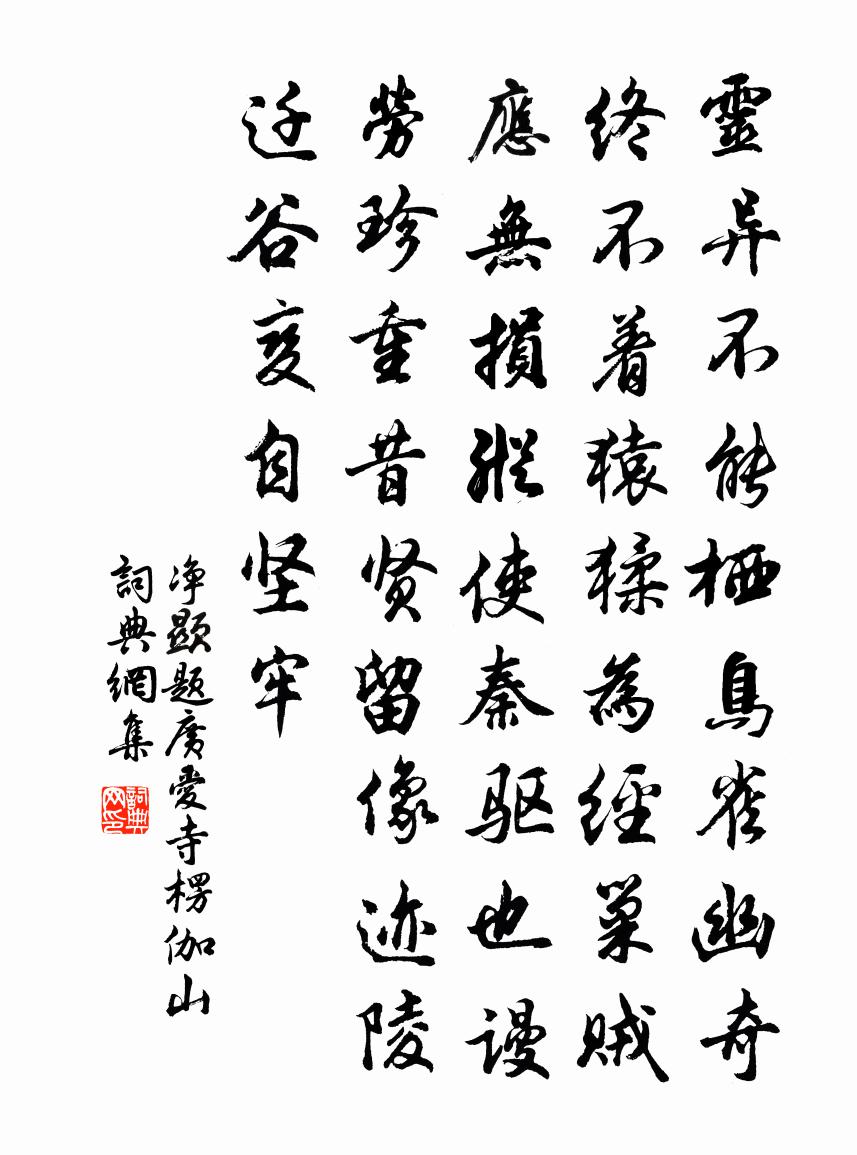 靈异不能栖鳥雀幽奇
終不着猿猱為經巢賊
應無損縱使秦驱也谩
勞珍重昔贤留像迹陵
迁谷变自坚牢
净顕题廣愛寺楞伽山
詞典網集
詞典网印